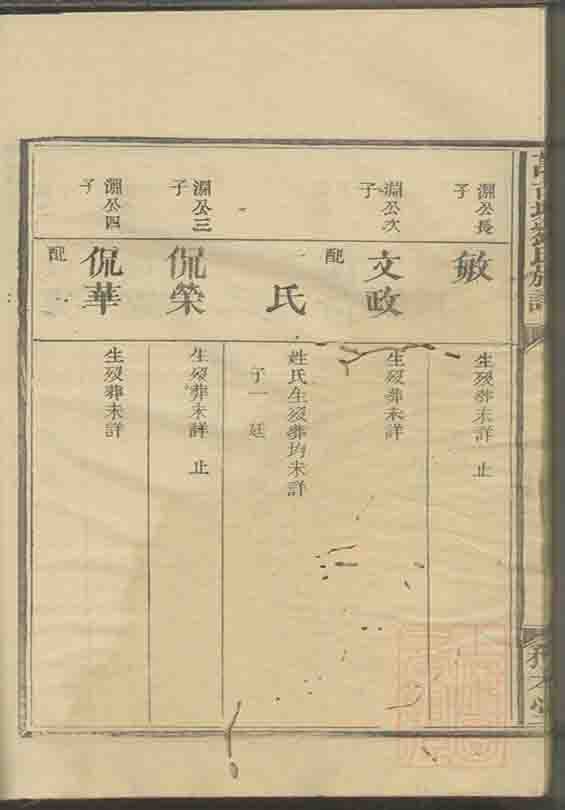 淵公長子
敏
生歿葬未詳 止
淵公次子
文政
生歿葬未詳
配
氏
姓氏生歿葬均未詳
子一 廷
淵公三子
侃榮
生歿葬未詳 止
淵公四子
侃華
生歿葬未詳
配
氏族譜